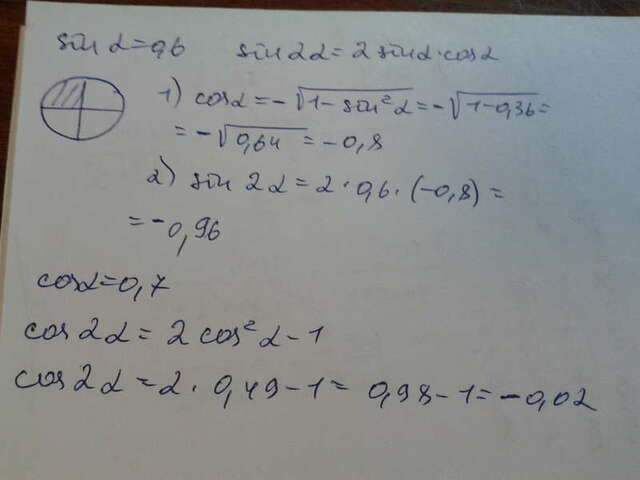 sin α = 0,6 sin 2α = 2 sin α · cos α
1) cos α = -√(1 - sin² α) = -√(1 - 0,36) =
= -√0,64 = -0,8
2) sin 2α = 2 · 0,6 · (-0,8) =
= -0,96
cos α = 0,7
cos 2α = 2 cos² α - 1
cos 2α = 2 · 0,49 - 1 = 0,98 - 1 = -0,02